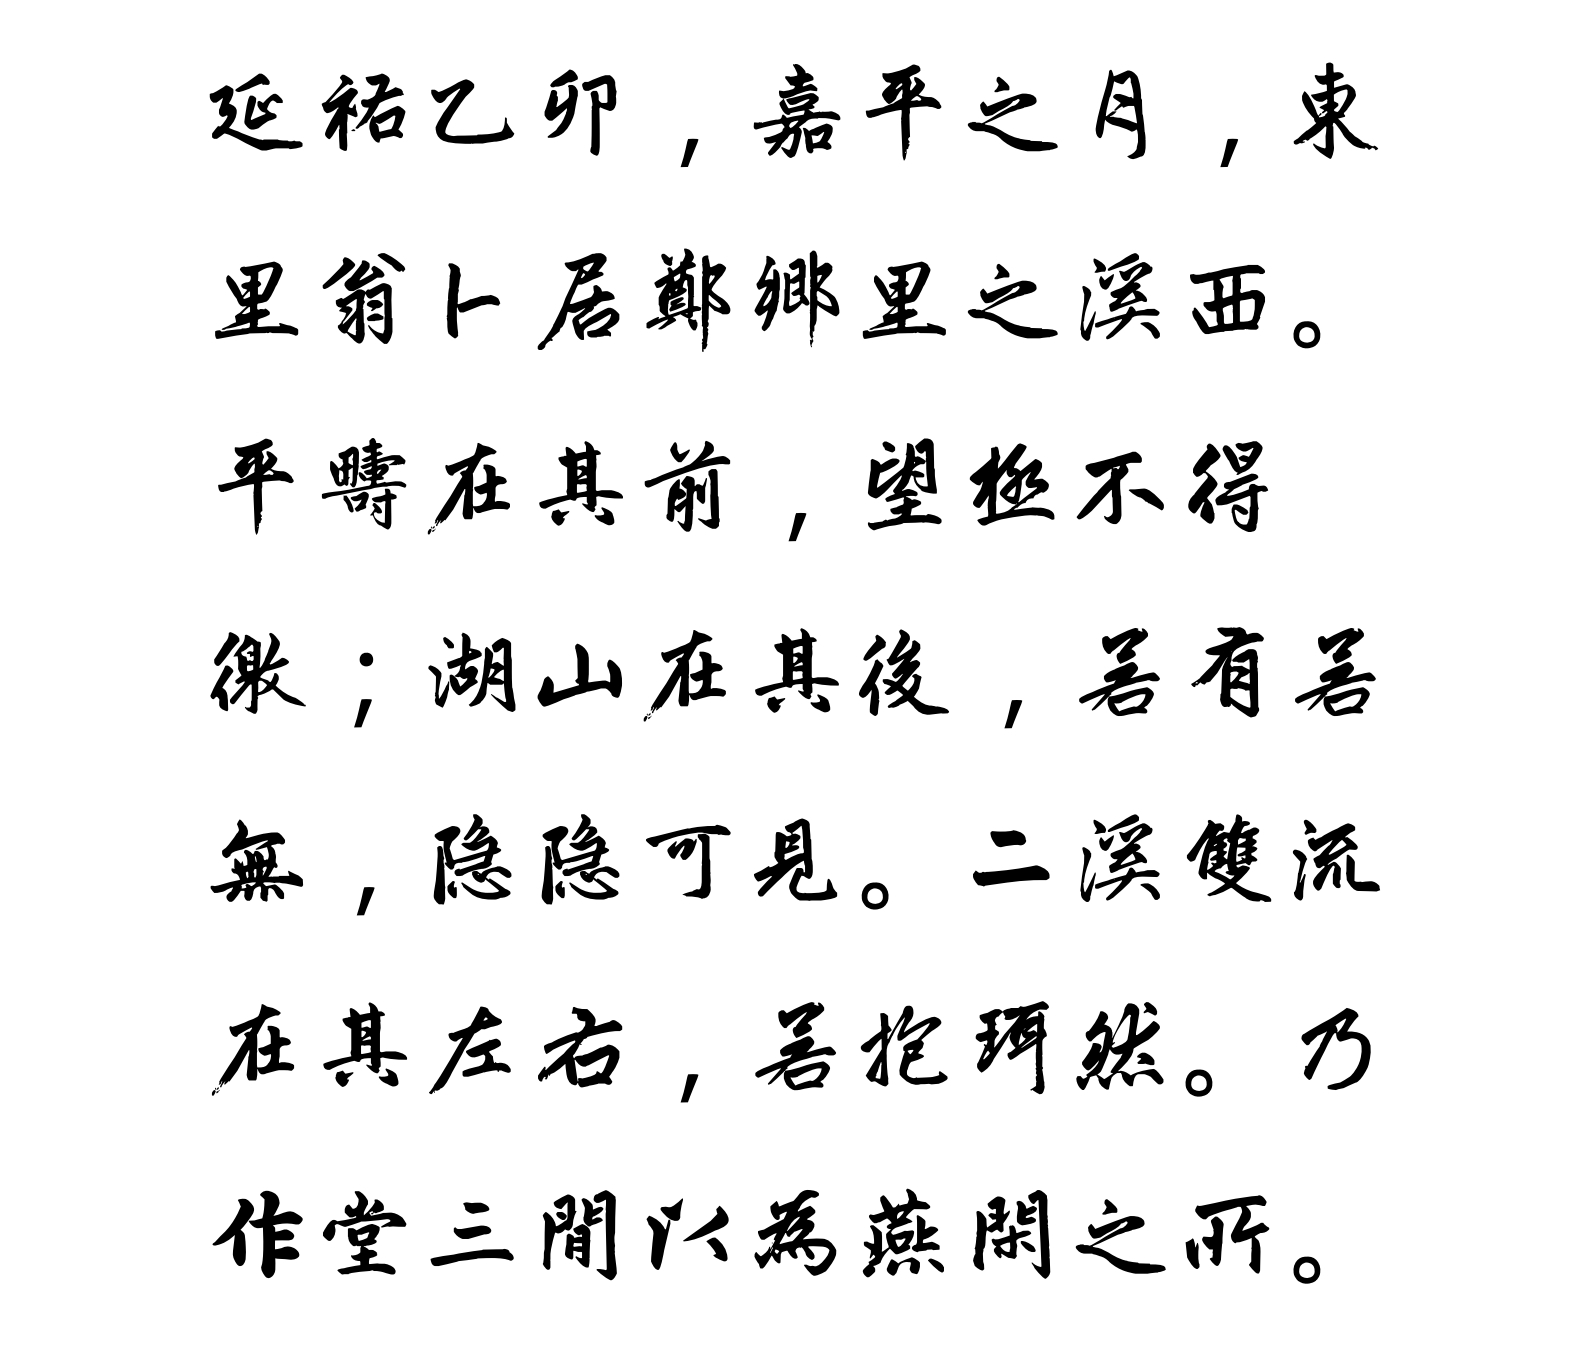 延祐乙卯，嘉平之月，東
里翁卜居鄭鄉里之溪西。
平疇在其前，望極不得
徼；湖山在其後，若有若
無，隱隱可見。二溪雙流
在其左右，若抱珥然。乃
作堂三間以為燕閑之所。